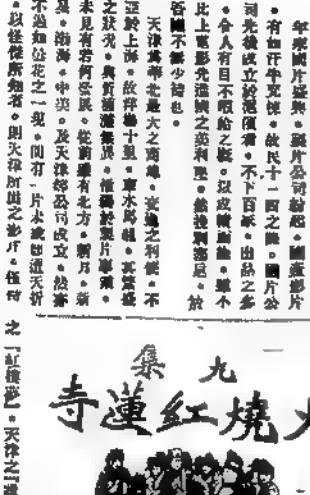 年來國片盛興。製片公司紛起。國產影片
。有如汗牛充棟。故民十一四之際。國片公
司先後成立於滬濱者。不下百家。出品之多
。令人有目不暇給之概。以故
比上電影先進國之英利堅。然
國不無少補也。
天津爲華北最大之商埠。交通之利便。不
亞於上海。故洋樓十里。車水馬龍。其繁盛
之狀況。與浦灘無異。惟獨於製片事業。
未見有若何發展。從前雖有北方。新月。新
星。渤海。中美。及天津影公司成立。然亦
不過如曇花之一現。間有一片未成即遭夭折
。以怪傑所知者。則天津所出之影片。僅得
之「紅樓影」。天津之「
一
九集
火燒紅蓮寺